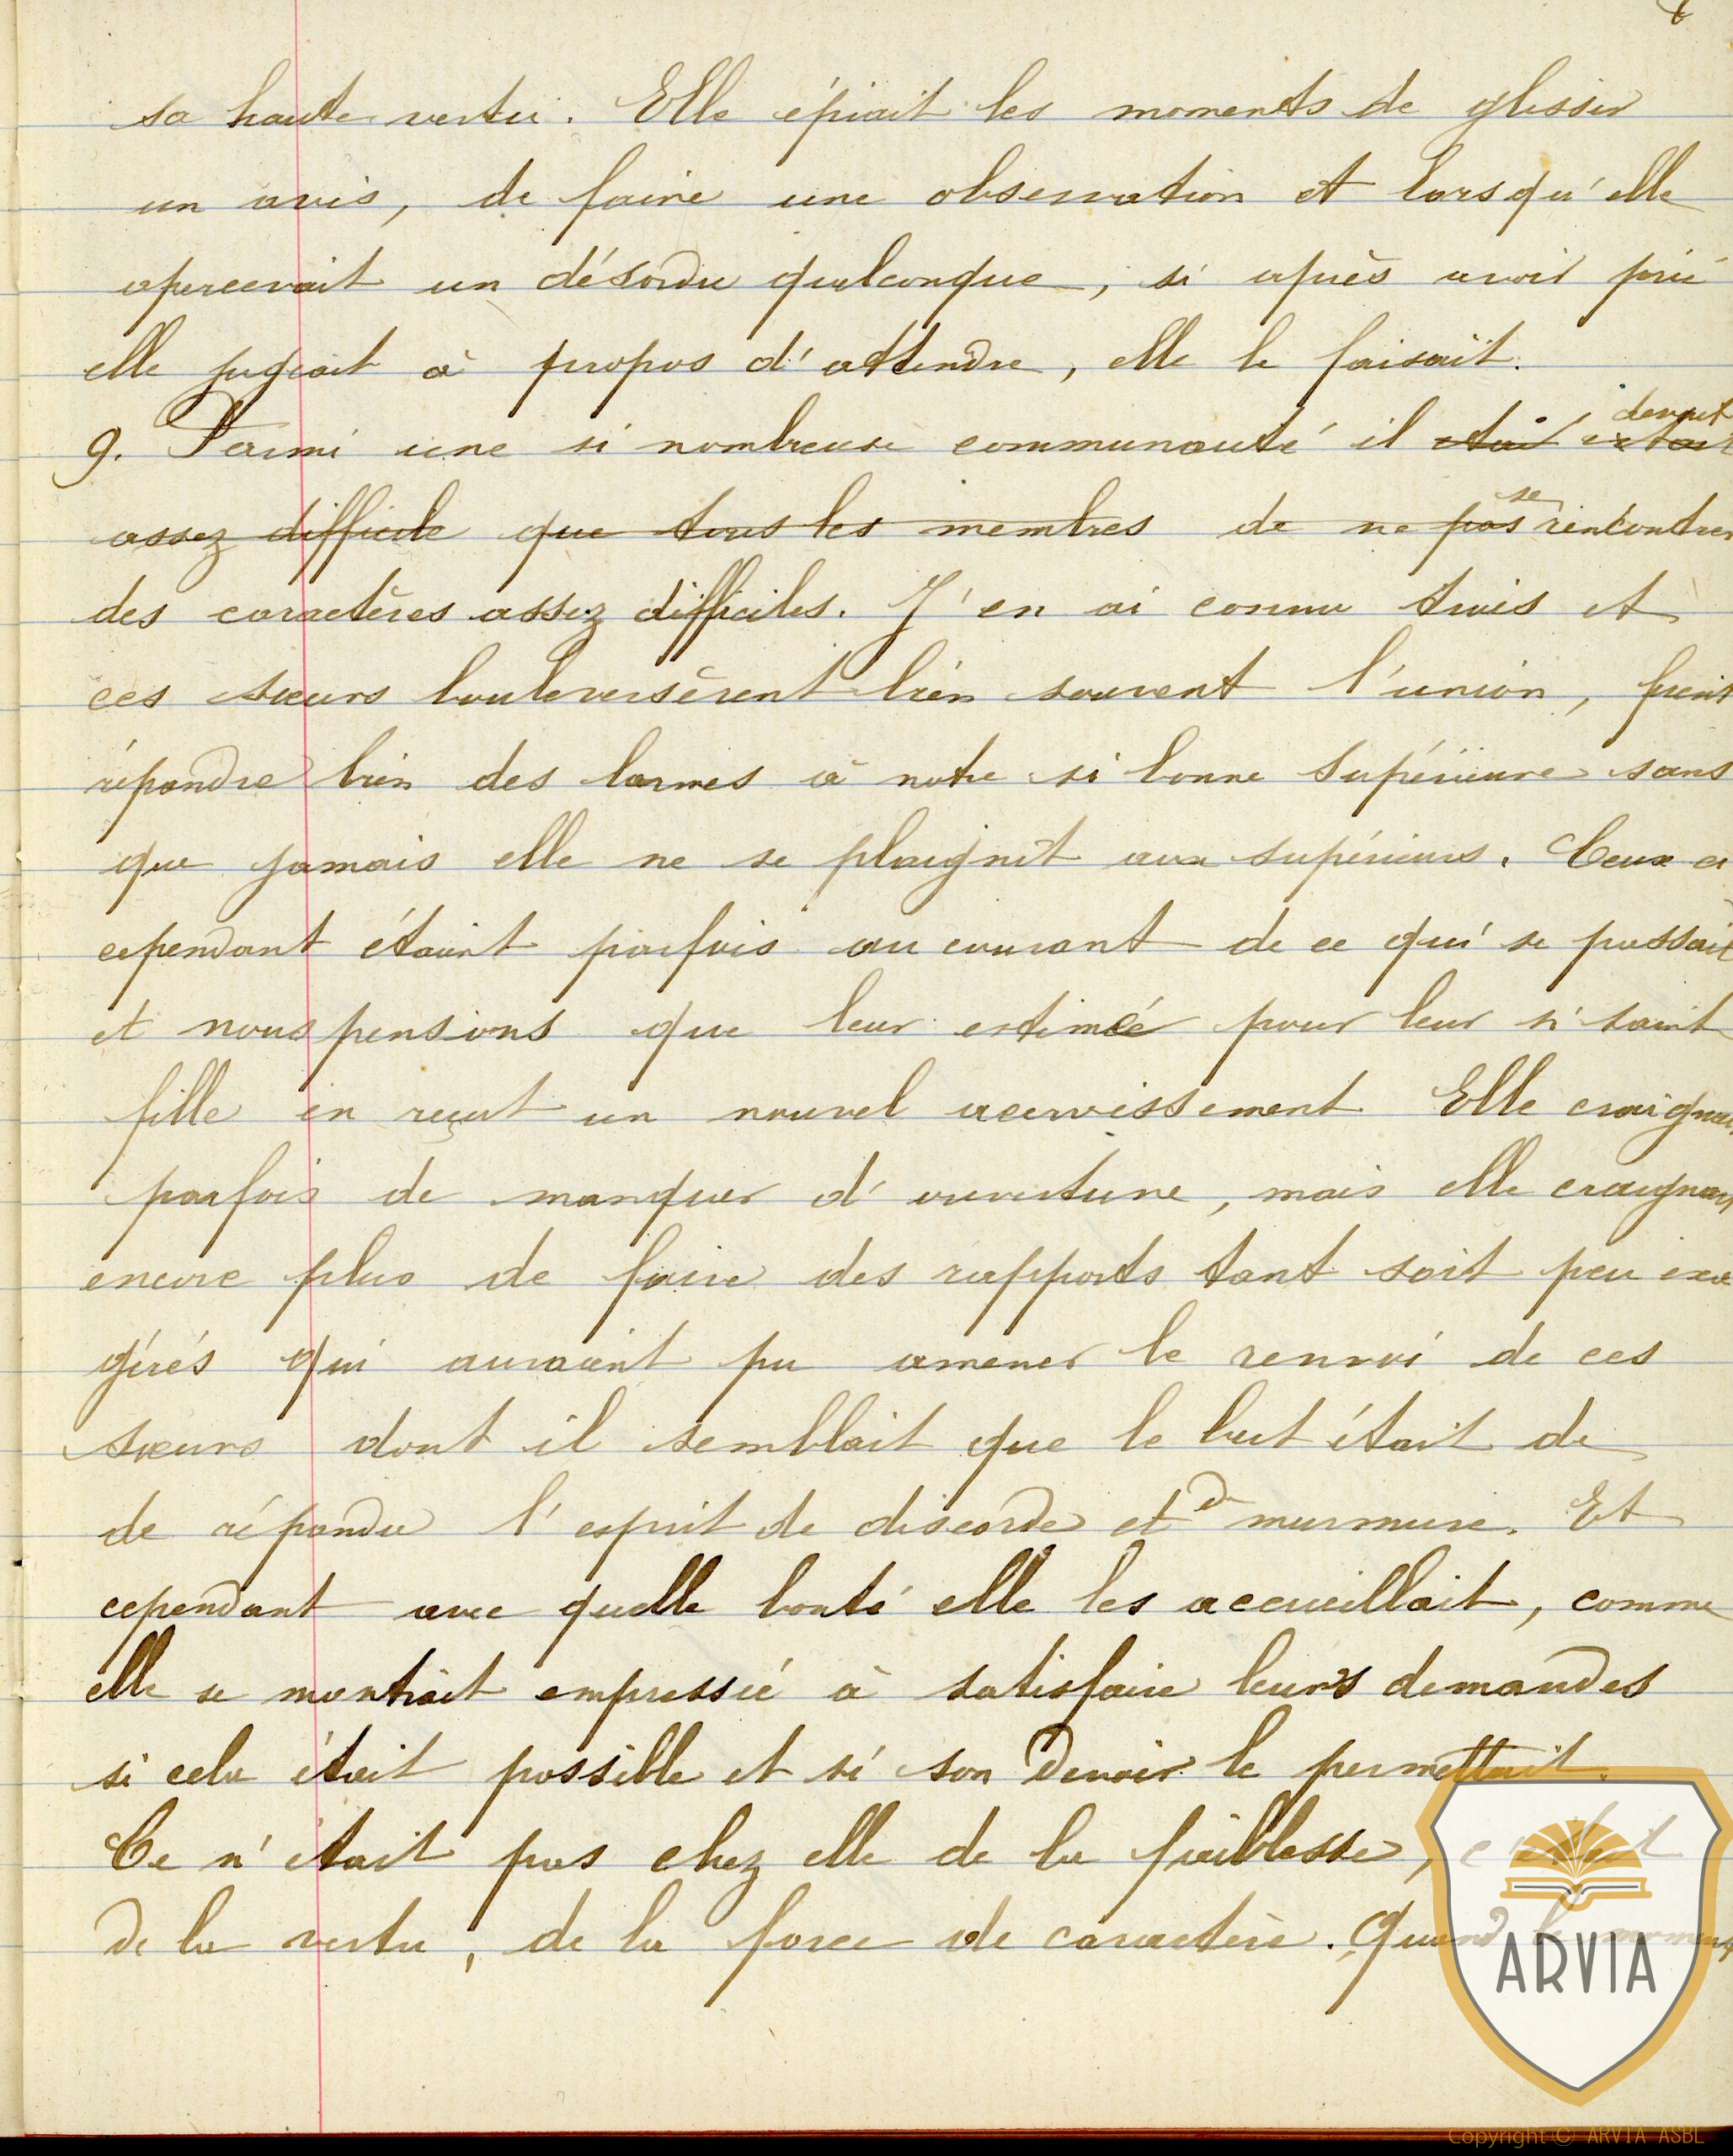 sa haute vertu. Elle épiait les moments de glisser
un avis, de faire une observation et lorsqu'elle
apercevait un désordre quelconque, si après avoir prié
elle jugeait à propos d'attendre, elle le faisait.
9. Parmi une si nombreuse communauté il était devait
assez difficile que tous les membres de ne pas se rencontrer
des caractères assez difficiles. J'en ai connu trois et
ces sœurs bouleversèrent bien souvent l'union, firent
répandre bien des larmes à notre si bonne Supérieure sans
que jamais elle ne se plaignît aux supérieurs. Ceux ci
cependant étaient parfois au courant de ce qui se passait
et nous pensions que leur estime pour leur si saint
fille en reçut un nouvel accroissement Elle craignait
parfois de manquer d'ouverture, mais elle craignait
encore plus de faire des rapports tant soit peu exa
gérés qui auraient pu amener le renvoi de ces
sœurs dont il semblait que le but était de
de répandre l'esprit de discorde et d murmure. Et
cependant avec quelle bonté elle les accueillait, comme
elle se montrait empressée à satisfaire leurs demandes
si cela était possible et si son devoir le permettait.
Ce n'était pas chez elle de la faiblesse, c'était
de la vertu, de la force de caractère. Quand le
ARVIA
Copyright © ARVIA ASBL